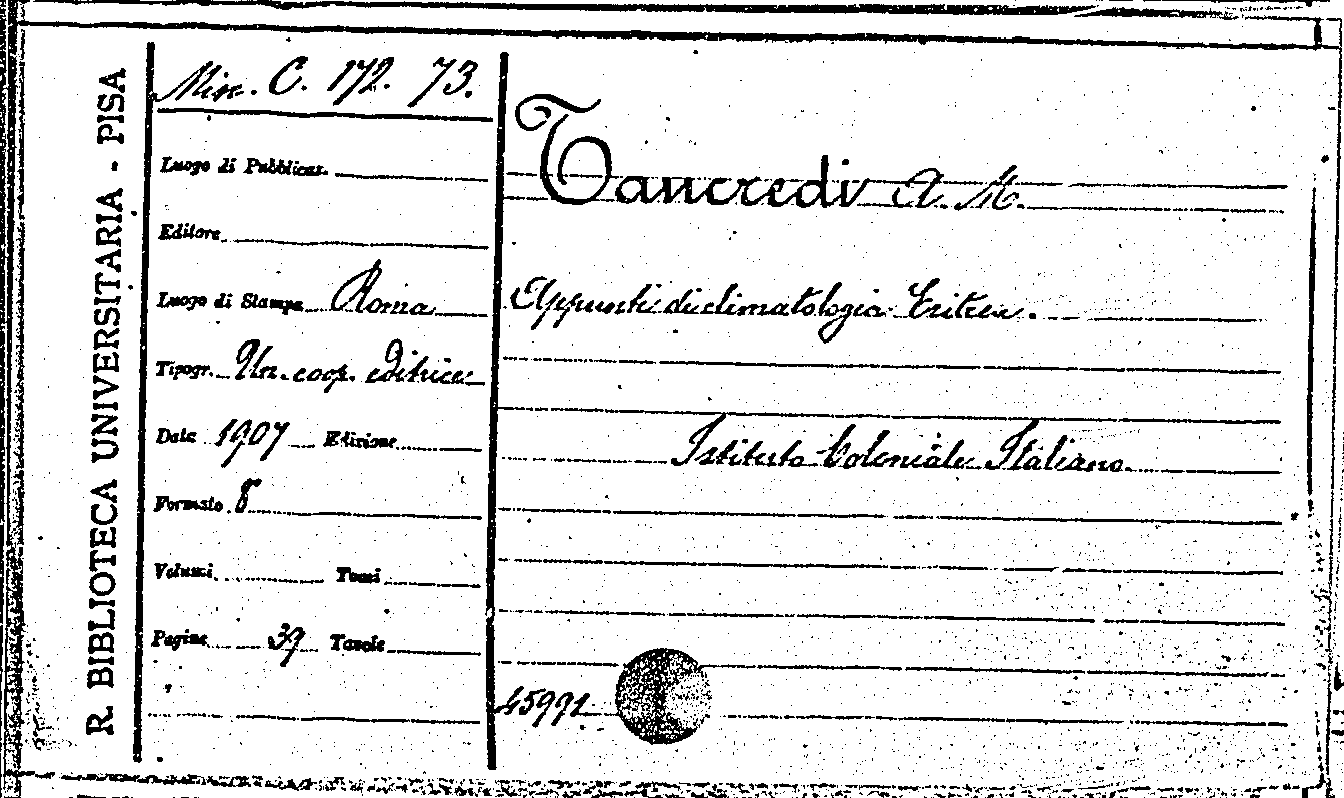 R. BIBLIOTECA UNIVERSITARIA - PISA
Misc. C. 172. 73.
Luogo di Pubblicaz.
Editore
Luogo di Stampa Roma
Tipogr. Un. coop. editrice
Data 1907 Edizione
Formato 8
Volumi Tomi
Pagine 39 Tavole
Tancredi A. M.
Appunti di climatologia Eritrea.
Istituto Coloniale Italiano.
45991